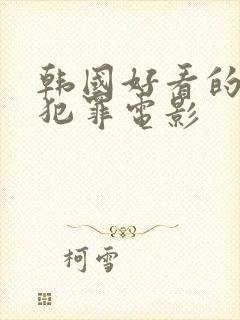 韩國好看的
犯罪电影
柯雪